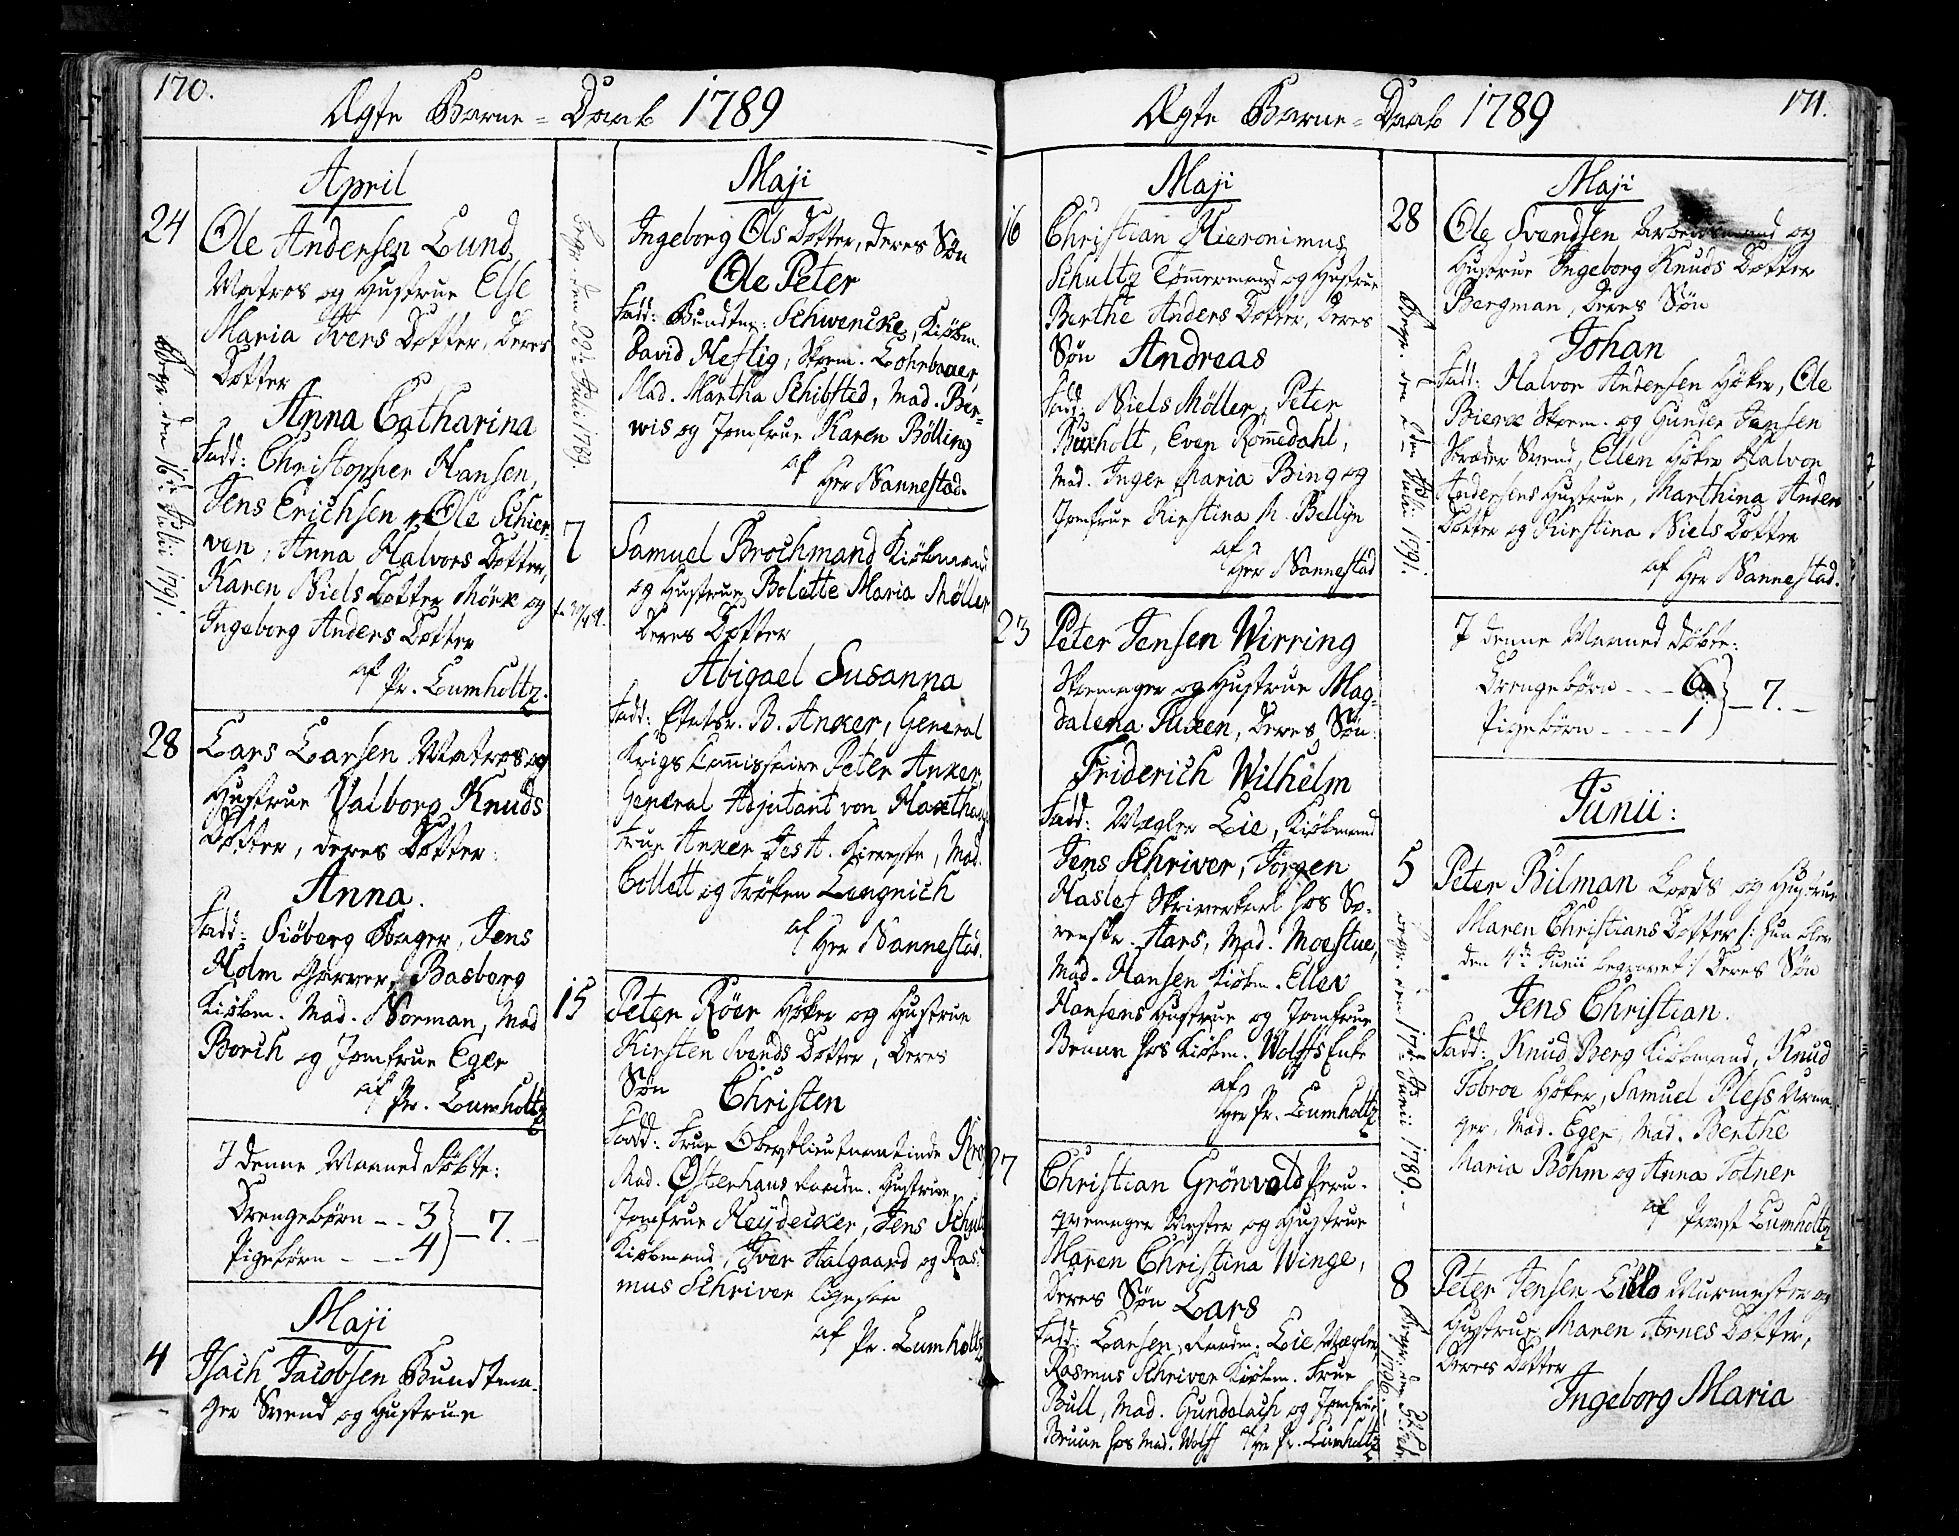 170.
Ægte Barne-Daab 1789
April
24
Ole Andersen Lund,
Matros og Hustrue Else
Maria Ivers Dotter, deres
Dotter
Anna Catharina
Fadd: Christopher Hansen,
Jens Erichsen, Ole Schier-
ven, Anna Halvors Dotter,
Karen Niels Dotter Mörk og
Ingeborg Anders Dotter
af Pr. Lumholtz.
Begr. den 16de Julii 1791.
28
Lars Larsen Matros og
Hustrue Valborg Knuds
Dotter, deres Dotter:
Anna.
Fadd: Siöberg Bager, Jens
Holm Garver, Basberg
Kiöbm. Mad. Norman, Mad
Borch og Jomfrue Eger
af Pr. Lumholtz
I denne Maaned Döbte:
Drengebörn -- 3
Pigebörn --- 4 } - 7. -
Maji
4
Isach Jacobsen Bundtma-
ger Svend og Hustrue
Maji
Ingeborg Ols Dotter, deres Sön
Ole Peter
Fadd: Bundtm: Schwencke, Kiöbm.
David Heftig, Skom. Lohrbauer,
Mad. Martha Schibsted, Mad. Ber-
wis og Jomfrue Karen Bölling
af Her Nannestad.
Begr. den 29de Julii 1789.
7
Samuel Brochmand Kiöbmand
og Hustrue Bolette Maria Möller
Deres Dotter
Abigael Susanna
Fadd: Etatsr. B. Anker, General
Krigs Commissaire Peter Anker,
General Adjutant von Haxthau
Frue Anker Kiereste, Mad.
Collett og Fröken Lengnich
af Her Nannestad.
15
Peter Röer Höker og Hustrue
Kirsten Svends Dotter, Deres
Sön Christen
Fadd: Frue Oberstlieutnantinde
Mad. Østerhaus Hustrue,
Jomfrue Heydecker, Jens Schul
Kiöbmand, Iver Aalgaard og Ras-
mus Schriver
af Pr. Lumholtz
171.
Ægte Barne-Daab 1789
Maji
16
Christian Hieronimus
Schultz Tömmermand og Hustrue
Berthe Anders Dotter, Deres
Sön Andreas
Fadd: Niels Möller, Peter
Buxholt, Even Romedahl,
Mad. Inger Maria Bing og
Jomfrue Kirstina M. Bellyn
af Her Nannestad
23
Peter Jensen Wirring
Skomager og Hustrue Mag-
dalena Tuxen, Deres Sön:
Friderich Wilhelm
Fadd: Mægler Lie, Kiöbmand
Jens Schriver, Jörgen
Haslef Skriverkarl hos So-
renskr. Aars, Mad. Moestue,
Mad. Hansen Kiöbm. Ellev
Hansens Hustrue og Jomfrue
Bruun hos Kiöbm. Wolffs Enke
af
Her Pr. Lumholtz
27
Christian Grönvold Peru-
qvemager Mester og Hustrue
Maren Christina Winge,
Deres Sön Lars
Fadd: Larsen, Lie, Mægler,
Rasmus Schriver Kiöbm. Frue
Bull, Mad. Gundelach og Jomfrue
Bruun hos Mad. Wolff af Her Pr. Lumholtz
Maji
28
Ole Svendsen Arbeidsmand og
Hustrue Ingeborg Knuds Dotter
Bergman, Deres Sön
Johan
Fadd: Halvor Andersen Höker, Ole
Bierk Skom. og Gunder Jensen
Skræder Svend, Ellen Höker Halvor
Andersens Hustrue, Marthina Anders
Dotter og Kirstina Niels Dotter
af Her Nannestad.
Begr. den Julii 1791.
I denne Maaned döbte:
Drengebörn --- 6
Pigebörn ---- 1 } - 7. -
Junii:
5
Peter Bilman Loods og Hustrue
Maren Christians Dotter /: hun blev
den 4de Junii begravet :/ Deres Sön
Jens Christian.
Fadd: Knud Berg Kiöbmand, Knud
Tobroe Höker, Samuel Pless Urma-
ger, Mad. Eger, Mad. Berthe
Maria Böhm og Anna Tolner
af Provst Lumholtz
Begr. den 17de Junii 1789.
8
Peter Jensen Lillo Murmester og
Hustrue Maren Arnes Dotter,
Deres Dotter
Ingeborg Maria